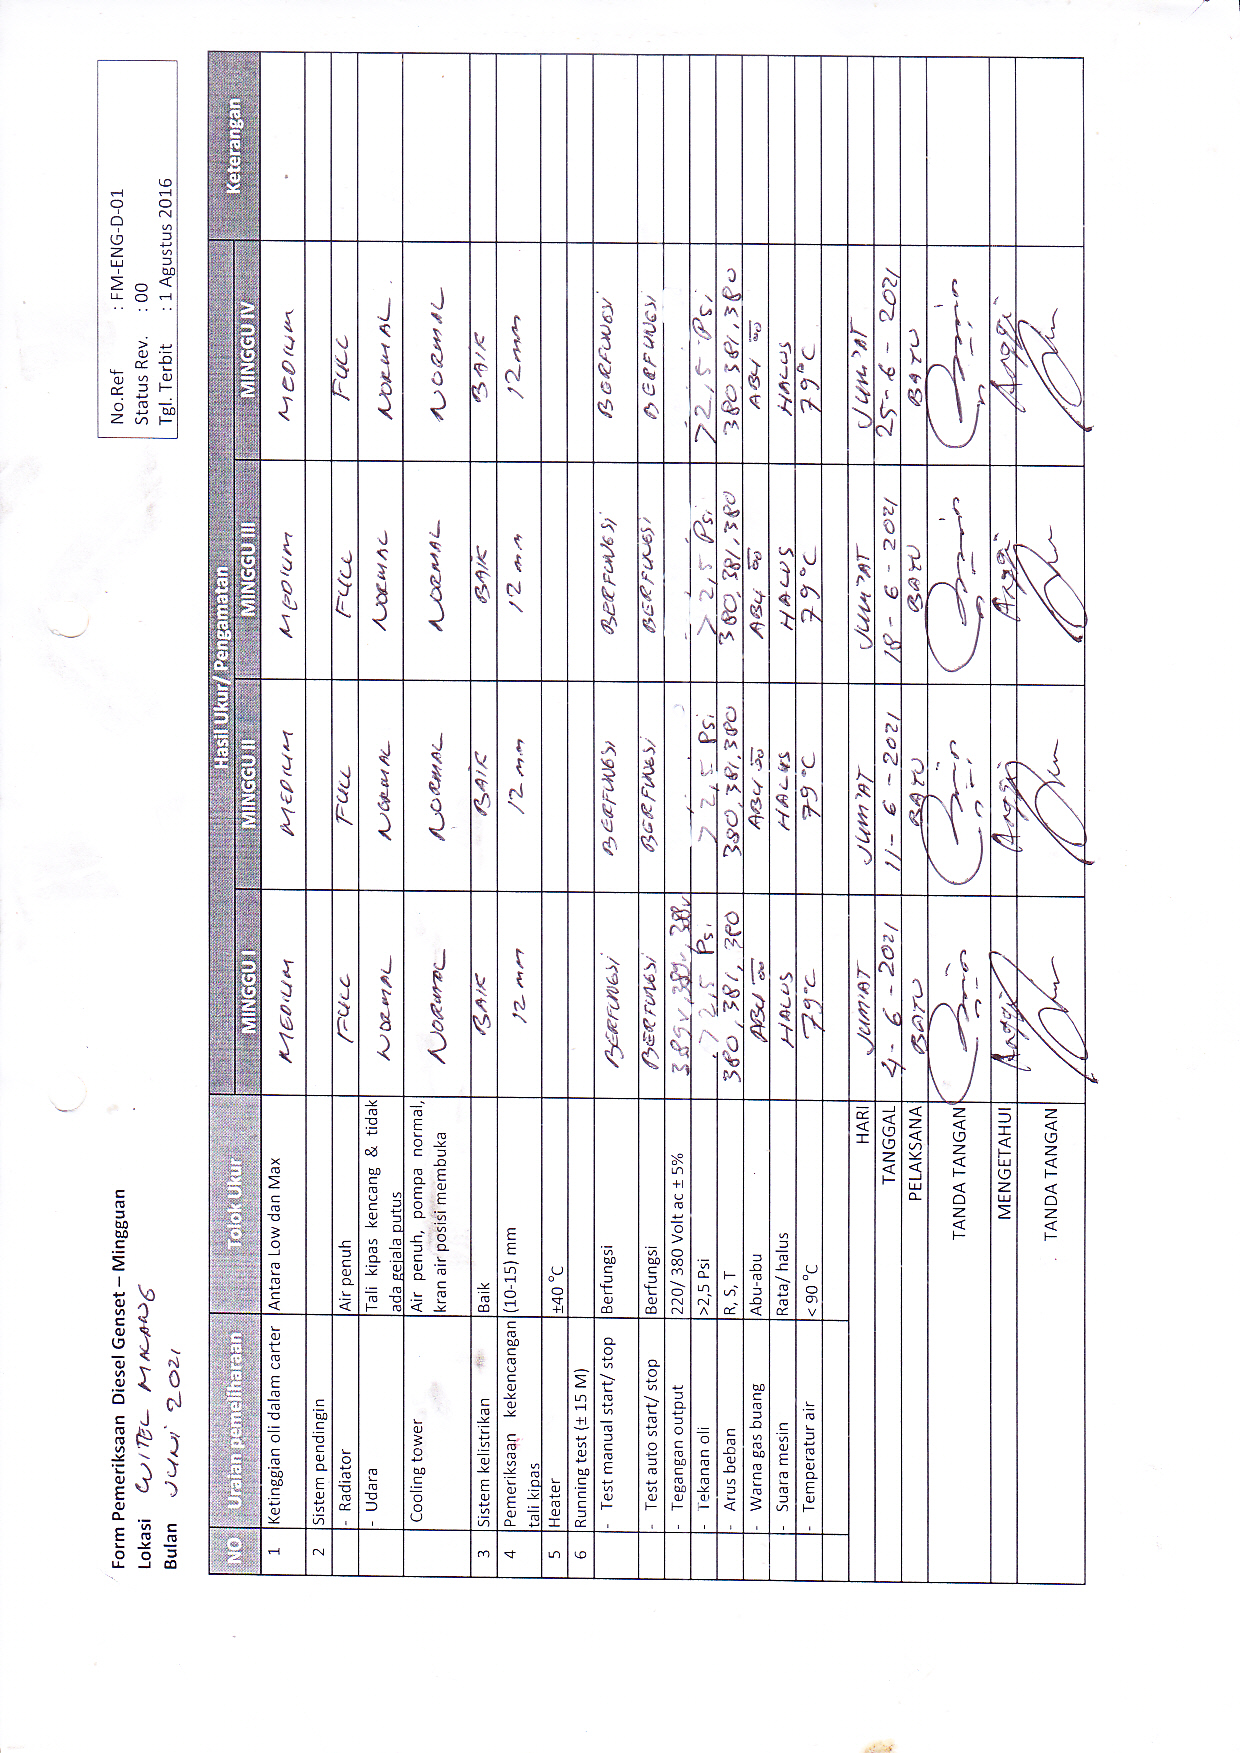 Form Pemeriksaan Diesel Genset – Mingguan
No.Ref : FM-ENG-D-01
Lokasi WITEL MALANG
Status Rev. : 00
Bulan JUNI 2021
Tgl. Terbit : 1 Agustus 2016
NO Uraian pemeliharaan Tolok Ukur Hasil Ukur/ Pengamatan Keterangan
MINGGU I MINGGU II MINGGU III MINGGU IV
1 Ketinggian oli dalam carter Antara Low dan Max MEDIUM MEDIUM MEDIUM MEDIUM
2 Sistem pendingin
- Radiator Air penuh FULL FULL FULL FULL
- Udara Tali kipas kencang & tidak ada gejala putus NORMAL NORMAL NORMAL NORMAL
Cooling tower Air penuh, pompa normal, kran air posisi membuka NORMAL NORMAL NORMAL NORMAL
3 Sistem kelistrikan Baik BAIK BAIK BAIK BAIK
4 Pemeriksaan kekencangan tali kipas (10-15) mm 12 mm 12 mm 12 mm 12 mm
5 Heater ±40 °C
6 Running test (± 15 M)
- Test manual start/ stop Berfungsi BERFUNGSI BERFUNGSI BERFUNGSI BERFUNGSI
- Test auto start/ stop Berfungsi BERFUNGSI BERFUNGSI BERFUNGSI BERFUNGSI
- Tegangan output 220/ 380 Volt ac ± 5%
- Tekanan oli >2,5 Psi > 2,5 Psi > 2,5 Psi > 2,5 Psi >2,5 Psi
- Arus beban R, S, T 380, 381, 380 380, 381, 380 380, 381, 380 380 381, 380
- Warna gas buang Abu-abu ABU ABU ABU ABU
- Suara mesin Rata/ halus HALUS HALUS HALUS HALUS
- Temperatur air < 90 °C 79°C 79°C 79°C 79°C
HARI JUM'AT JUM'AT JUM'AT JUM'AT
TANGGAL 4-6-2021 11-6-2021 18-6-2021 25-6-2021
PELAKSANA BAYU BAYU BAYU BAYU
TANDA TANGAN
MENGETAHUI Anggi Anggi Anggi Anggi
TANDA TANGAN